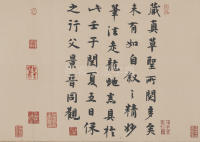 藏真草聖所閱多矣
未有如自叙之精妙
筆法走龍虵悉具於
此壬子閏夏五日保
之行父景晉同觀